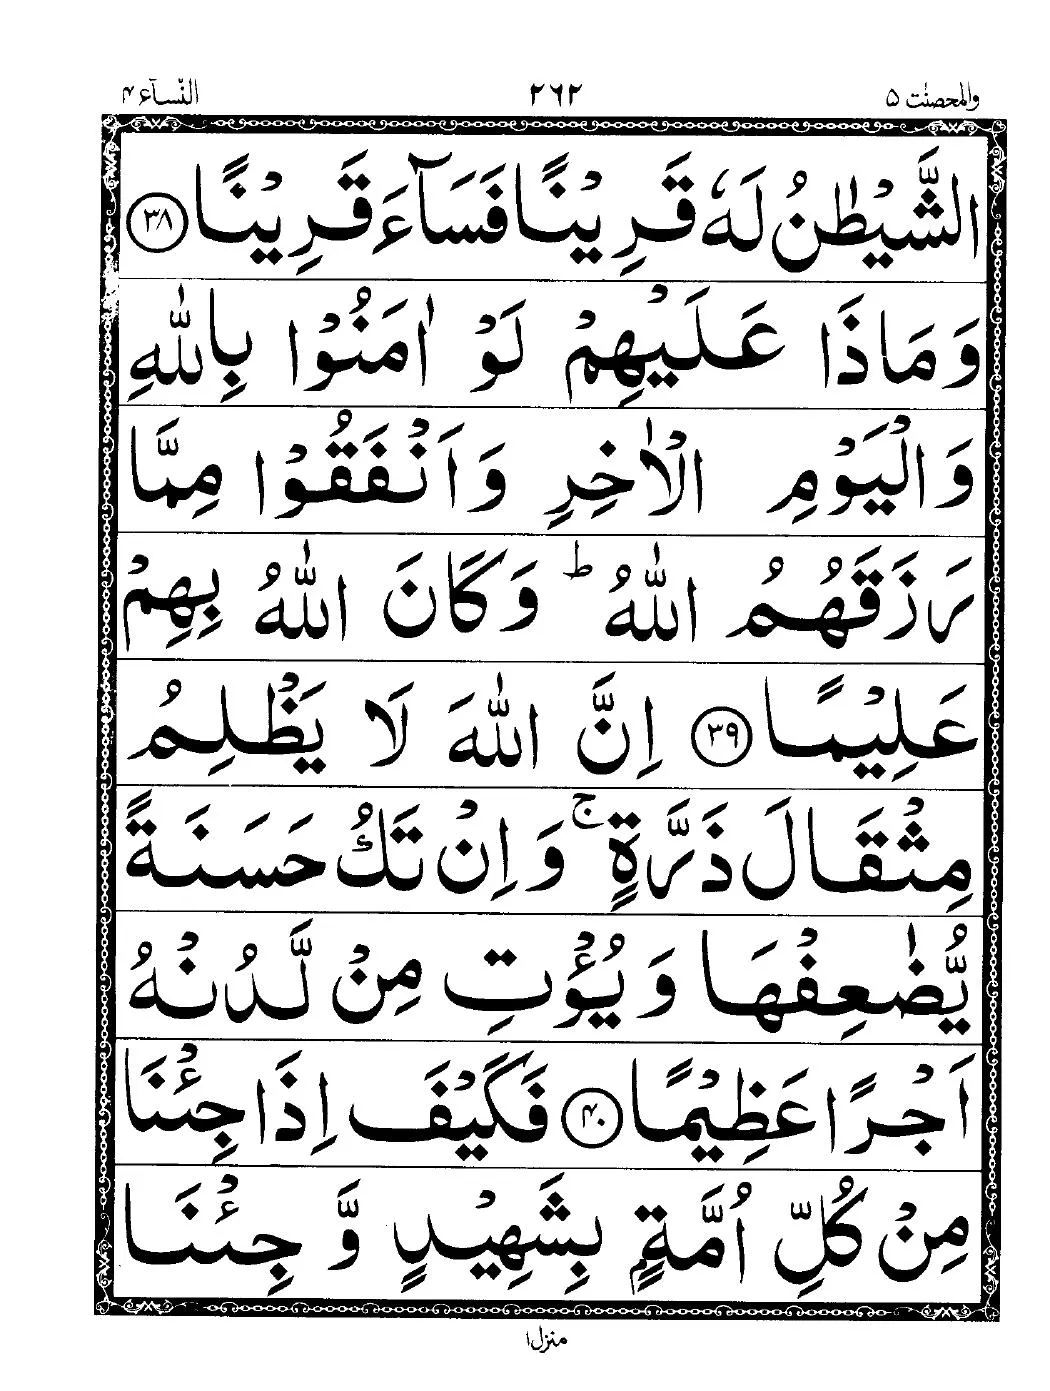 والمحصنٰت ۵ ۲۶۲ النّسآء ۴
الشَّيْطٰنُ لَهٗ قَرِيْنًا فَسَآءَ قَرِيْنًا ۝۳۸
وَمَاذَا عَلَيْهِمْ لَوْ اٰمَنُوْا بِاللّٰهِ
وَالْيَوْمِ الْاٰخِرِ وَاَنْفَقُوْا مِمَّا
رَزَقَهُمُ اللّٰهُ ؕ وَكَانَ اللّٰهُ بِهِمْ
عَلِيْمًا ۝۳۹ اِنَّ اللّٰهَ لَا يَظْلِمُ
مِثْقَالَ ذَرَّةٍ ۚ وَاِنْ تَكُ حَسَنَةً
يُّضٰعِفْهَا وَيُؤْتِ مِنْ لَّدُنْهُ
اَجْرًا عَظِيْمًا ۝۴۰ فَكَيْفَ اِذَا جِئْنَا
مِنْ كُلِّ اُمَّةٍۭ بِشَهِيْدٍ وَّجِئْنَا
منزل ۱